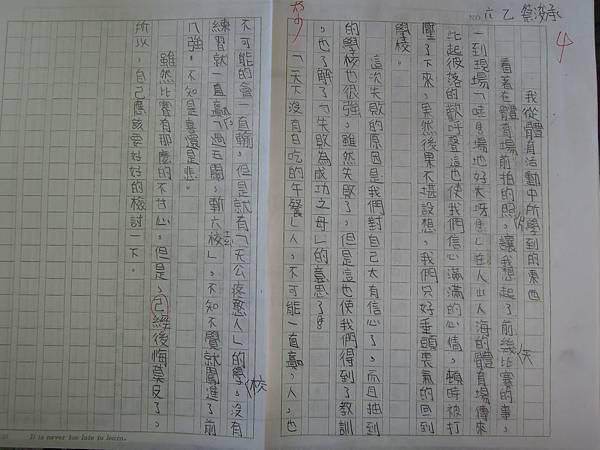 NO. 六乙 蔡浚承
我從體育活動中所學到的東西
看著在體育場前拍的照，讓我想起了前幾比賽的事，
天
一到現場「哇！場地好大呀！」在人山人海的體育場傳來
比起彼落的歡呼聲這也使我們信心滿滿的心情，頓時被打
壓了下來，果然後果不堪設想，我們只好垂頭喪氣的回到
學校。
這次失敗的原因是我們對自己太有信心了，而且抽到
的學校也很強，雖然失敗了，但是這也使我們得到了教訓
，也了解了「失敗為成功之母」的意思了。
「天下沒有白吃的午餐」人，不可能一直贏，人，也
不可能的會一直輸，但是就有「天公疼憨人」的學，沒有
校
練習就一直贏「過五關，斬六校」，不知不覺就闖進了前
八強，不知是喜還是悲。
雖然比賽有那麼的不甘心，但是，己經後悔莫及了，
所以，自己應該要好好的檢討一下。
It is never too late to learn.